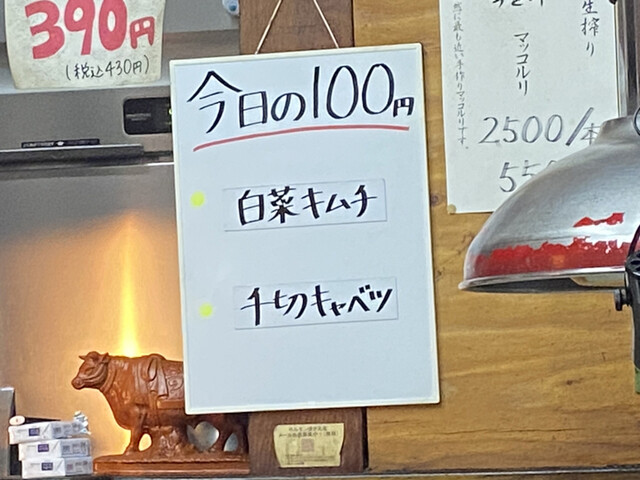 390円
(税込430円)
今日の100円
白菜キムチ
千切キャベツ
生搾り
マッコルリ
然に最も近い手作りマッコルリです。
2500/本